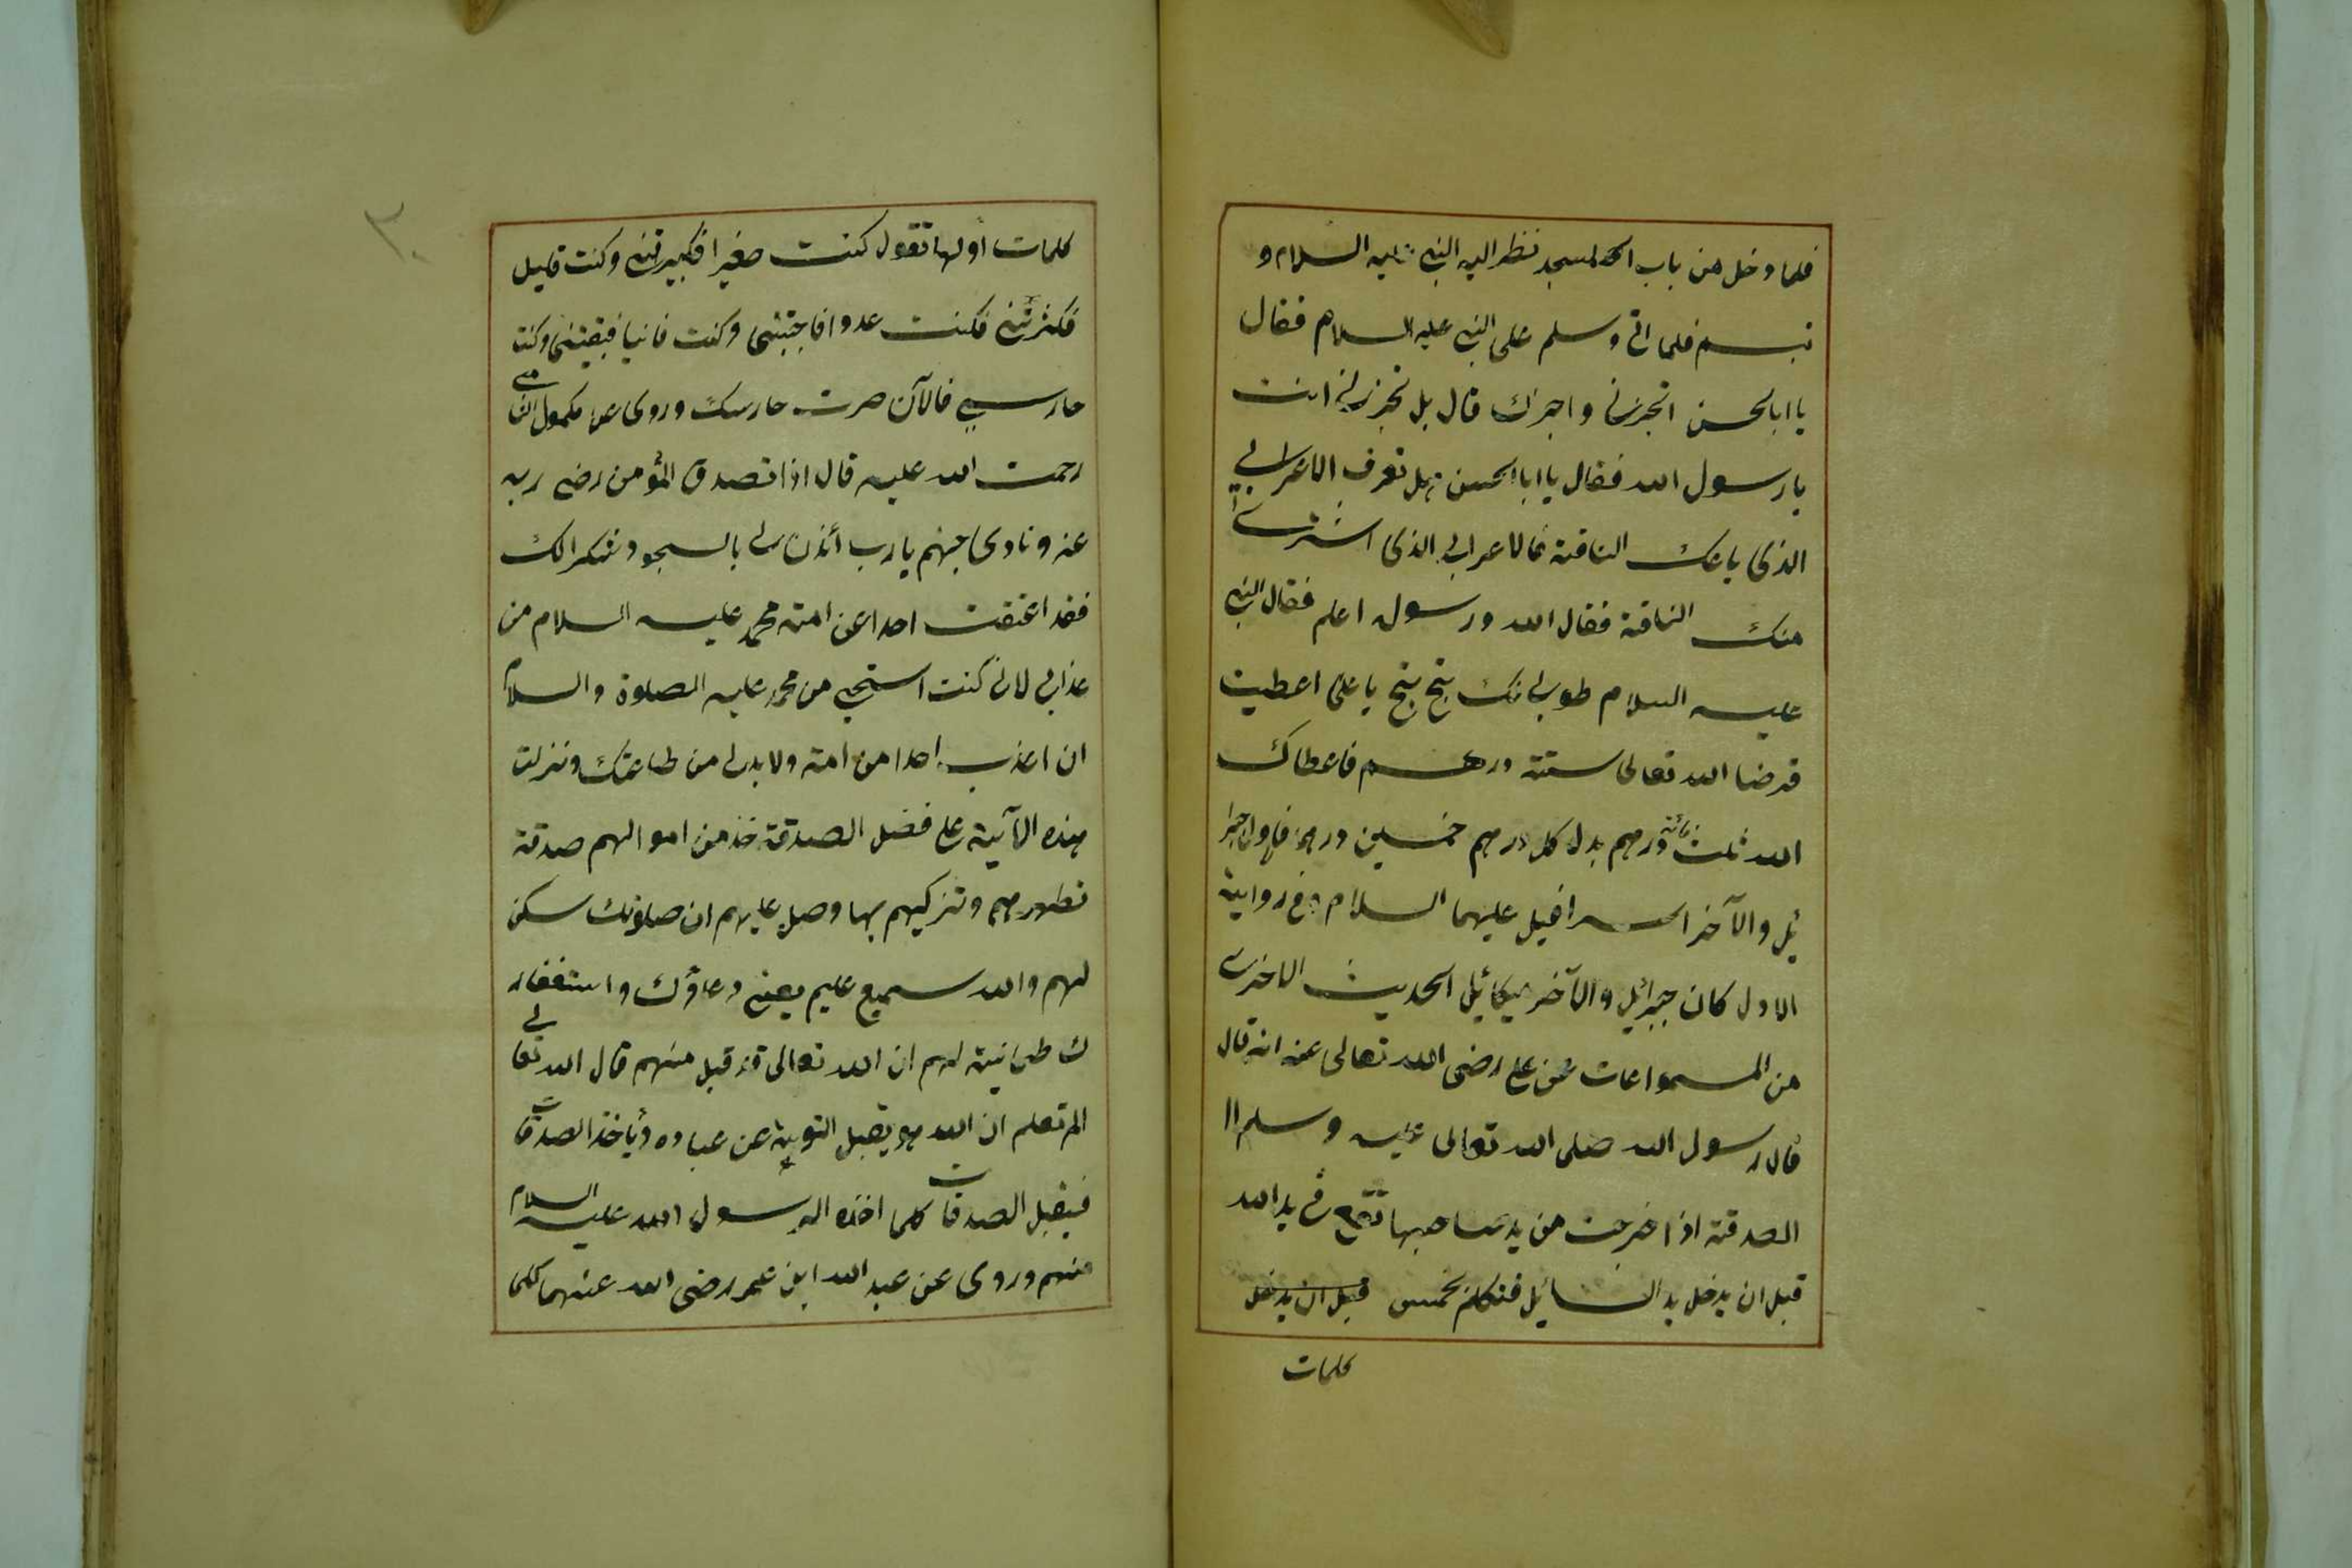 فلما دخل من باب المسجد نظر اليه النبى عليه السلام و
تبسم فلما اتى وسلم على النبى عليه السلام فقال
يا ابا الحسن اتخبرنى و اخبرك قال بل تخبرنى انت
يا رسول الله فقال يا ابا الحسن هل تعرف الاعرابى
الذى باعك الناقة والاعرابى الذى اشترى
منك الناقة فقال الله ورسوله اعلم فقال النبى
عليه السلام طوبى لك بخ بخ يا على اعطيت
قرضا الله تعالى ستة درهم فاعطاك
الله ثلث مائة درهم بدل كل درهم خمسين درهم فالاول جبرا
ئيل والآخر اسرافيل عليهما السلام وفى رواية
الاول كان جبرائيل والآخر ميكائيل الحديث الاخرى
من المسمواعات عن على رضى الله تعالى عنه انه قال
قال رسول الله صلى الله تعالى عليه وسلم ا ا
الصدقة اذا خرجت من يد صاحبها تقع فى يد الله
قبل ان يدخل يد السائيل فتكلم بخمس قبل ان يدخل
كلمات
٣٠
كلمات أولها تقول كنت صغيرا فكبيرتنى وكنت قليل
فكثرتنى فكنت عدوا فاحببتنى وكنت فانيا فبقيتنى وكنت
حارسى فالآن صرت حارسك وروى عن مكحول الشامى
رحمت الله عليه قال اذا تصدق المؤمن رضى ربه
عنه ونادى جهنم يارب أئذن لى بالسجود شكرا لك
فقد اعتقت احدا عن امة محمد عليه السلام من
عذابى لانى كنت استحيى من محمد عليه الصلوة والسلام
ان اعذب احدا من امته ولا بد لى من طاعتك ونزلت
هذه الآية على فضل الصدقة خذ من اموالهم صدقة
تطهرهم وتزكيهم بها وصل عليهم ان صلوتك سكن
لهم والله سميع عليم يعنى دعاؤك واستغفار
ك طمانية لهم ان الله تعالى قد قبل منهم قال الله تعالى
الم تعلم ان الله هو يقبل التوبة عن عباده ويأخذ الصدقات
فيقبل الصدقات كلما اخذه الرسول الله عليه السلام
منهم وروى عن عبد الله ابن عمر رضى الله عنهما كلما